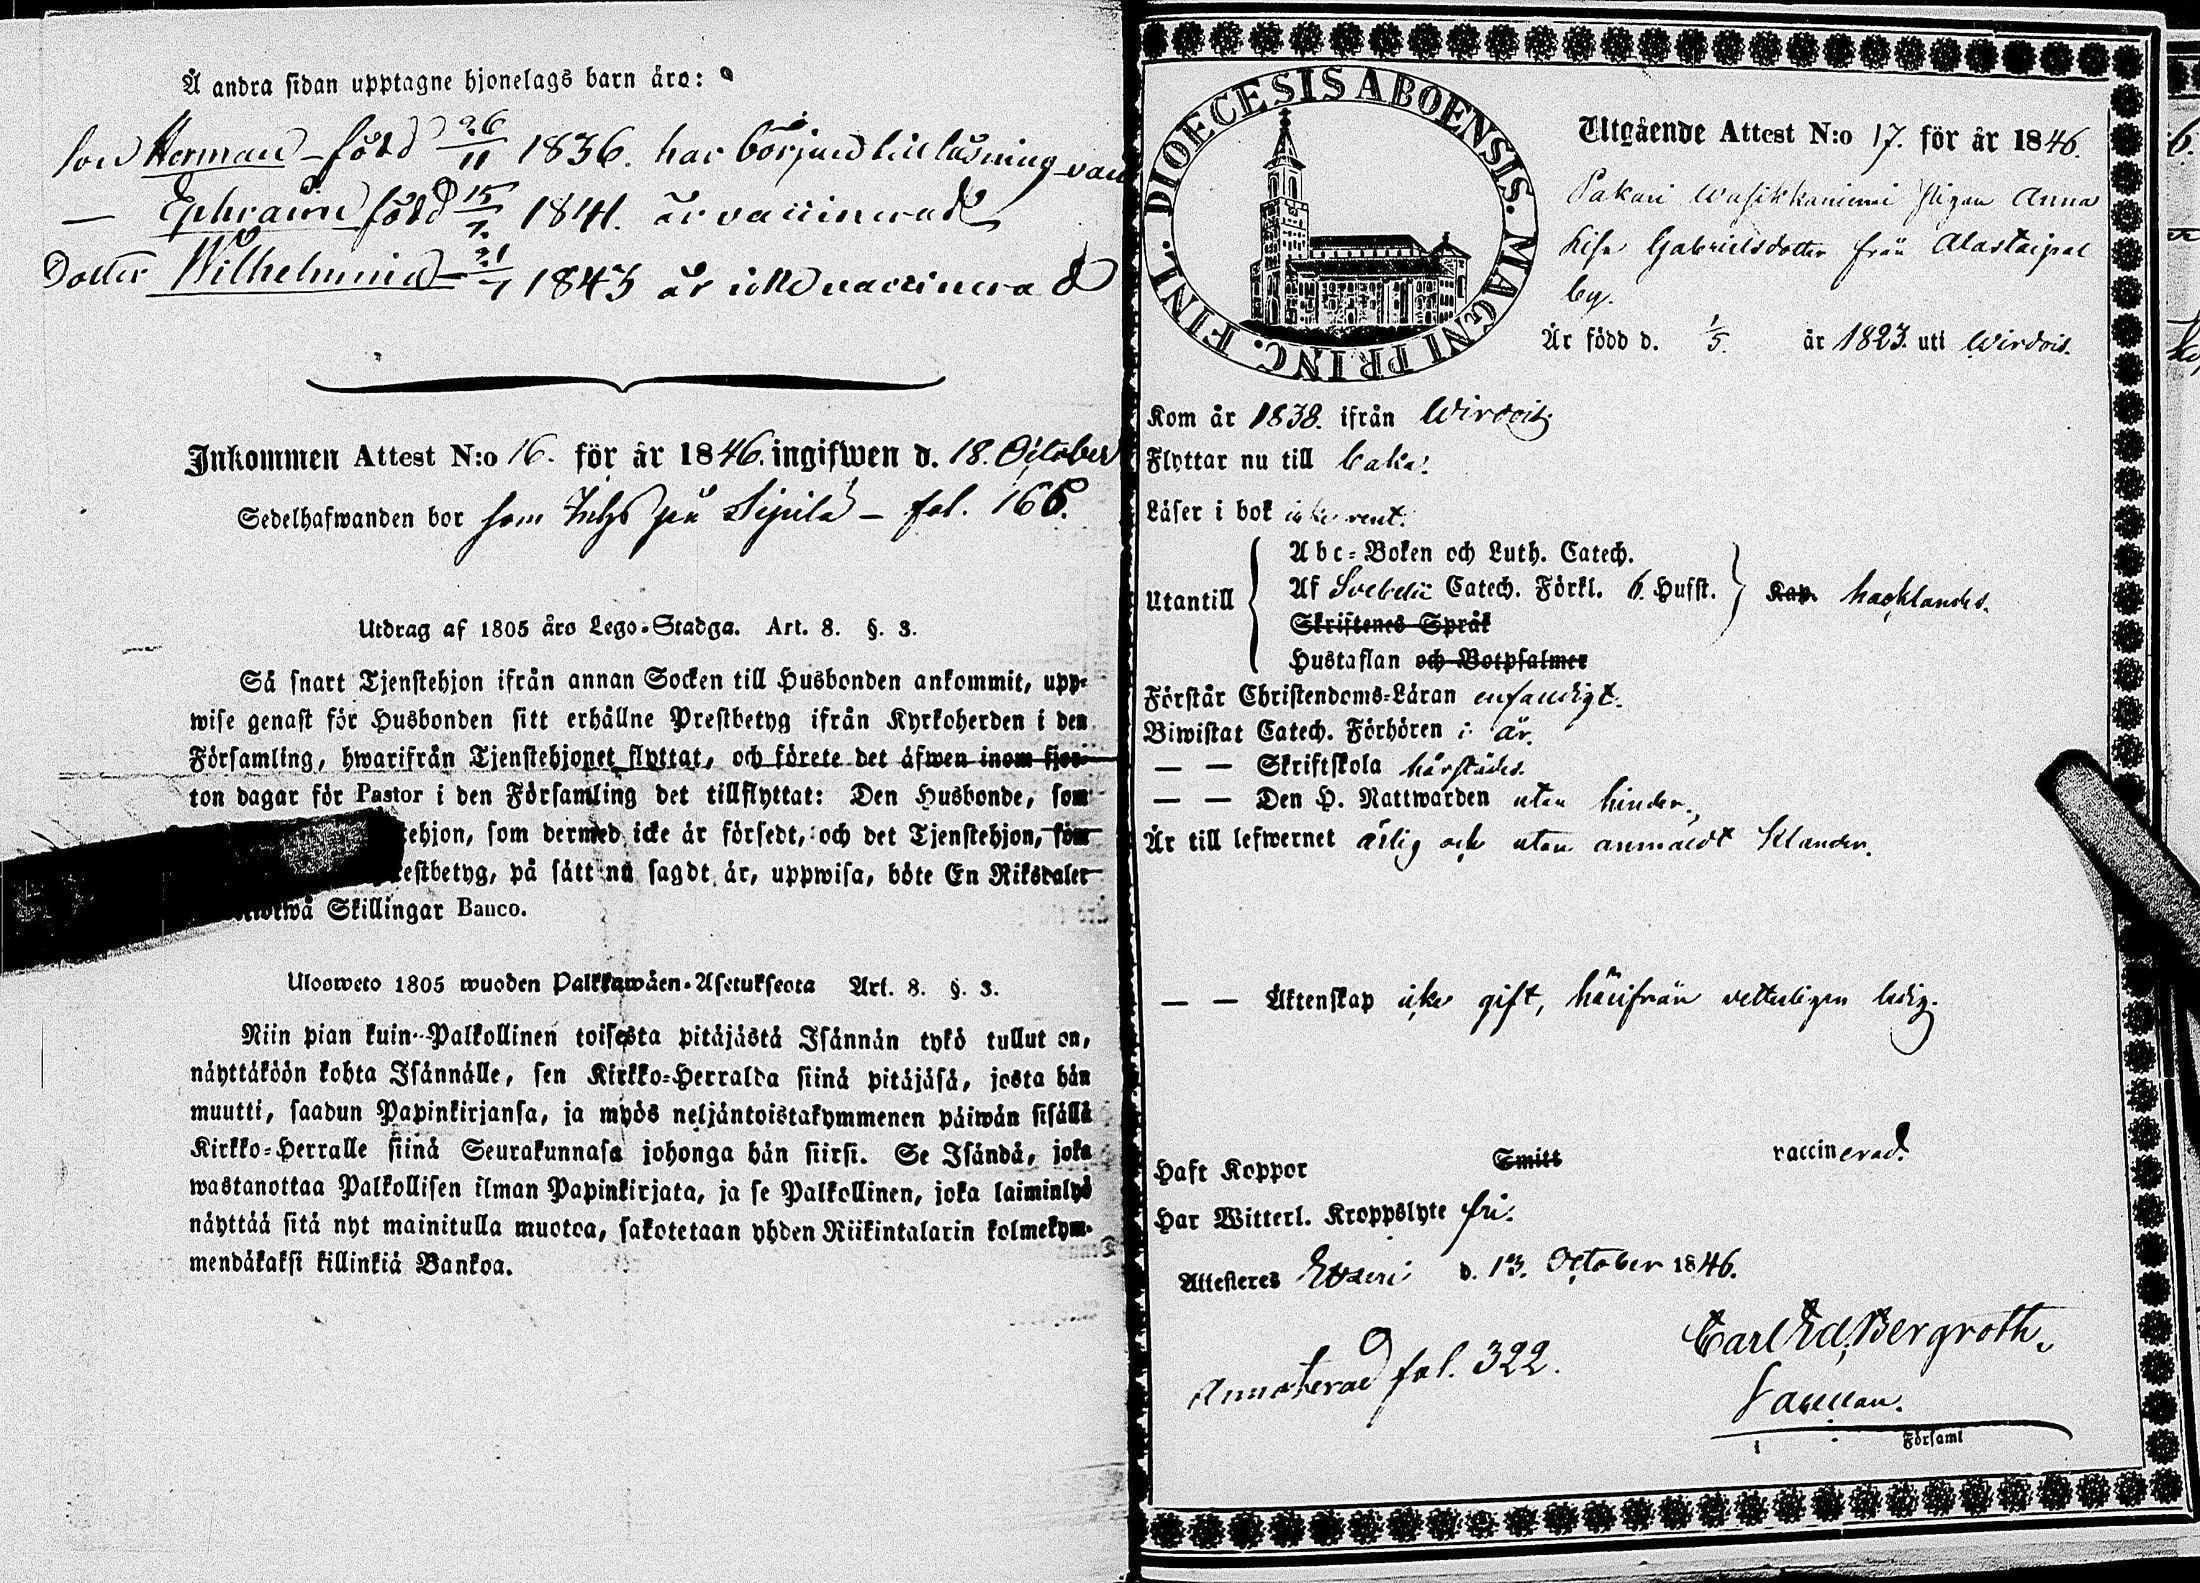 Å andra sidan upptagne hjonelags barn äro:
son Herman född 26/11 1836. har börjad till läsning
— Ephraim född 15/7. 1841. är vaccinerad
Dotter Wilhelmina 21/7 1845 är icke vaccinerad
Inkommen Attest N:o 16. för år 1846. ingifwen d. 18. October
Sedelhafwanden bor som Inhs på Sipilä — fol. 166.
Utdrag af 1805 års Lego-Stadga. Art. 8. §. 3.
Så snart Tjenstehjon ifrån annan Socken till Husbonden ankommit, upp-
wise genast för Husbonden sitt erhållne Prestbetyg ifrån Kyrkoherden i den
Församling, hwarifrån Tjenstehjonet flyttat, och förete det äfwen inom fjor-
ton dagar för Pastor i den Församling det tillflyttat: Den Husbonde, som
tehjon, som dermed icke är försedt, och det Tjenstehjon, som
restbetyg, på sätt nu sagdt är, uppwisa, böte En Riksdaler
Skillingar Banco.
Ulosweto 1805 wuoden Palkkawäen-Asetuksesta Art. 8. §. 3.
Niin pian kuin Palkollinen toisesta pitäjästä Isännän tykö tullut on,
näyttäköön kohta Isännälle, sen Kirkko-Herralda siinä pitäjäsä, josta hän
muutti, saadun Papinkirjansa, ja myös neljäntoistakymmenen päiwän sisällä
Kirkko-Herralle siinä Seurakunnasa johonga hän siirsi. Se Isändä, joka
wastanottaa Palkollisen ilman Papinkirjata, ja se Palkollinen, joka laiminlyö
näyttää sitä nyt mainitulla muotoa, sakotetaan yhden Riikintalarin kolmekym-
mendäkaksi killinkiä Bankoa.
DIOECESIS ABOENSIS. MAGNI PRINC. FINL.
Utgående Attest N:o 17. för år 1846.
Pakari Anna
Lisa Gabrielsdotter från Alastaipal
by.
Är född d. 1/5. år 1823. uti Wirdois.
Kom år 1838. ifrån Wirdois
Flyttar nu till
Läser i bok icke rent.
Utantill
Abc-Boken och Luth. Catech.
Af Svebelii Catech. Förkl. 6. Hufst.
Skriftenes Språk
Hustaflan och Botpsalmer
Kap. hacklandes.
Förstår Christendoms-Läran enfaldigt.
Biwistat Catech. Förhören i år.
— — Skriftskola härstädes.
— — Den H. Nattwarden utan hinder.
Är till lefwernet ärlig och utan anmäldt klander.
— — Äktenskap icke gift, härifrån vetterligen ledig.
Haft Koppor Smitt vaccinerad.
Har Witterl. Kroppslyte fri.
Attesteres Etseri d. 13. October 1846.
Carl Ed. Bergroth.
Annoterad fol. 322.
i Församl